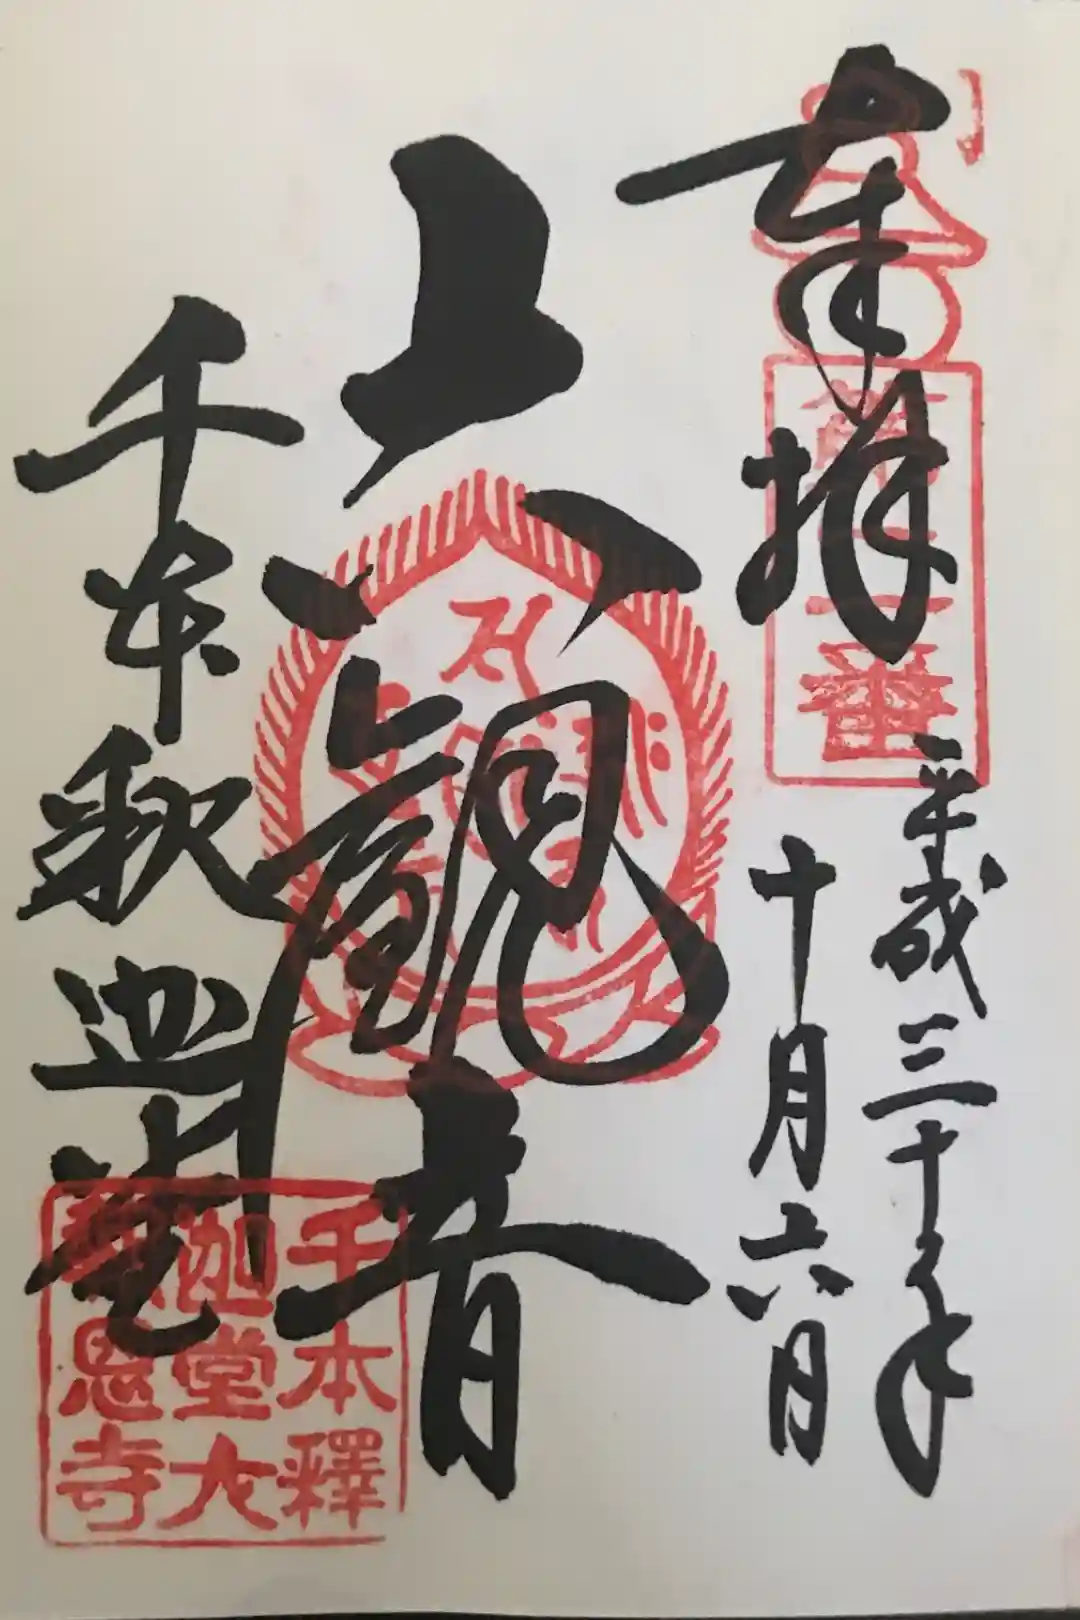 奉拝
第二番
平成三十年
十月六日
六観音
千本釈迦堂
千本釋
迦堂大
報恩寺